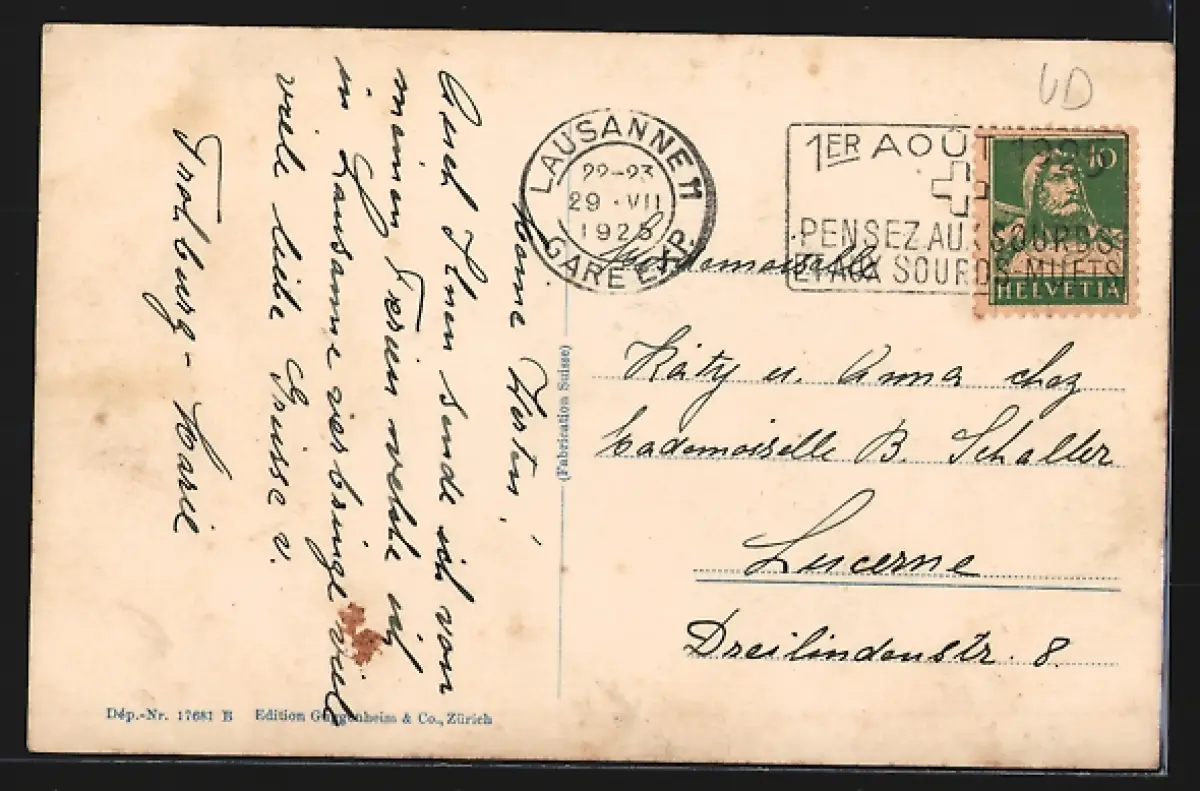 UD
LAUSANNE 11
22-23
29.VII
1925
GARE EXP.
1ER AOÛT 1925
PENSEZ AUX SOURDS
ET AUX SOURDS-MUETS
10
HELVETIA
Meine
Auch Ihnen sende ich von
meinen Ferien welche ich
in Lausanne verbringe viele
viele liebe Grüsse v.
Marie
(Fabrication Suisse)
Mademoiselle
Käty u. Anna chez
Mademoiselle B. Schaller
Lucerne
Dreilindenstr. 8.
Dép.-Nr. 17681 E Edition Guggenheim & Co., Zürich